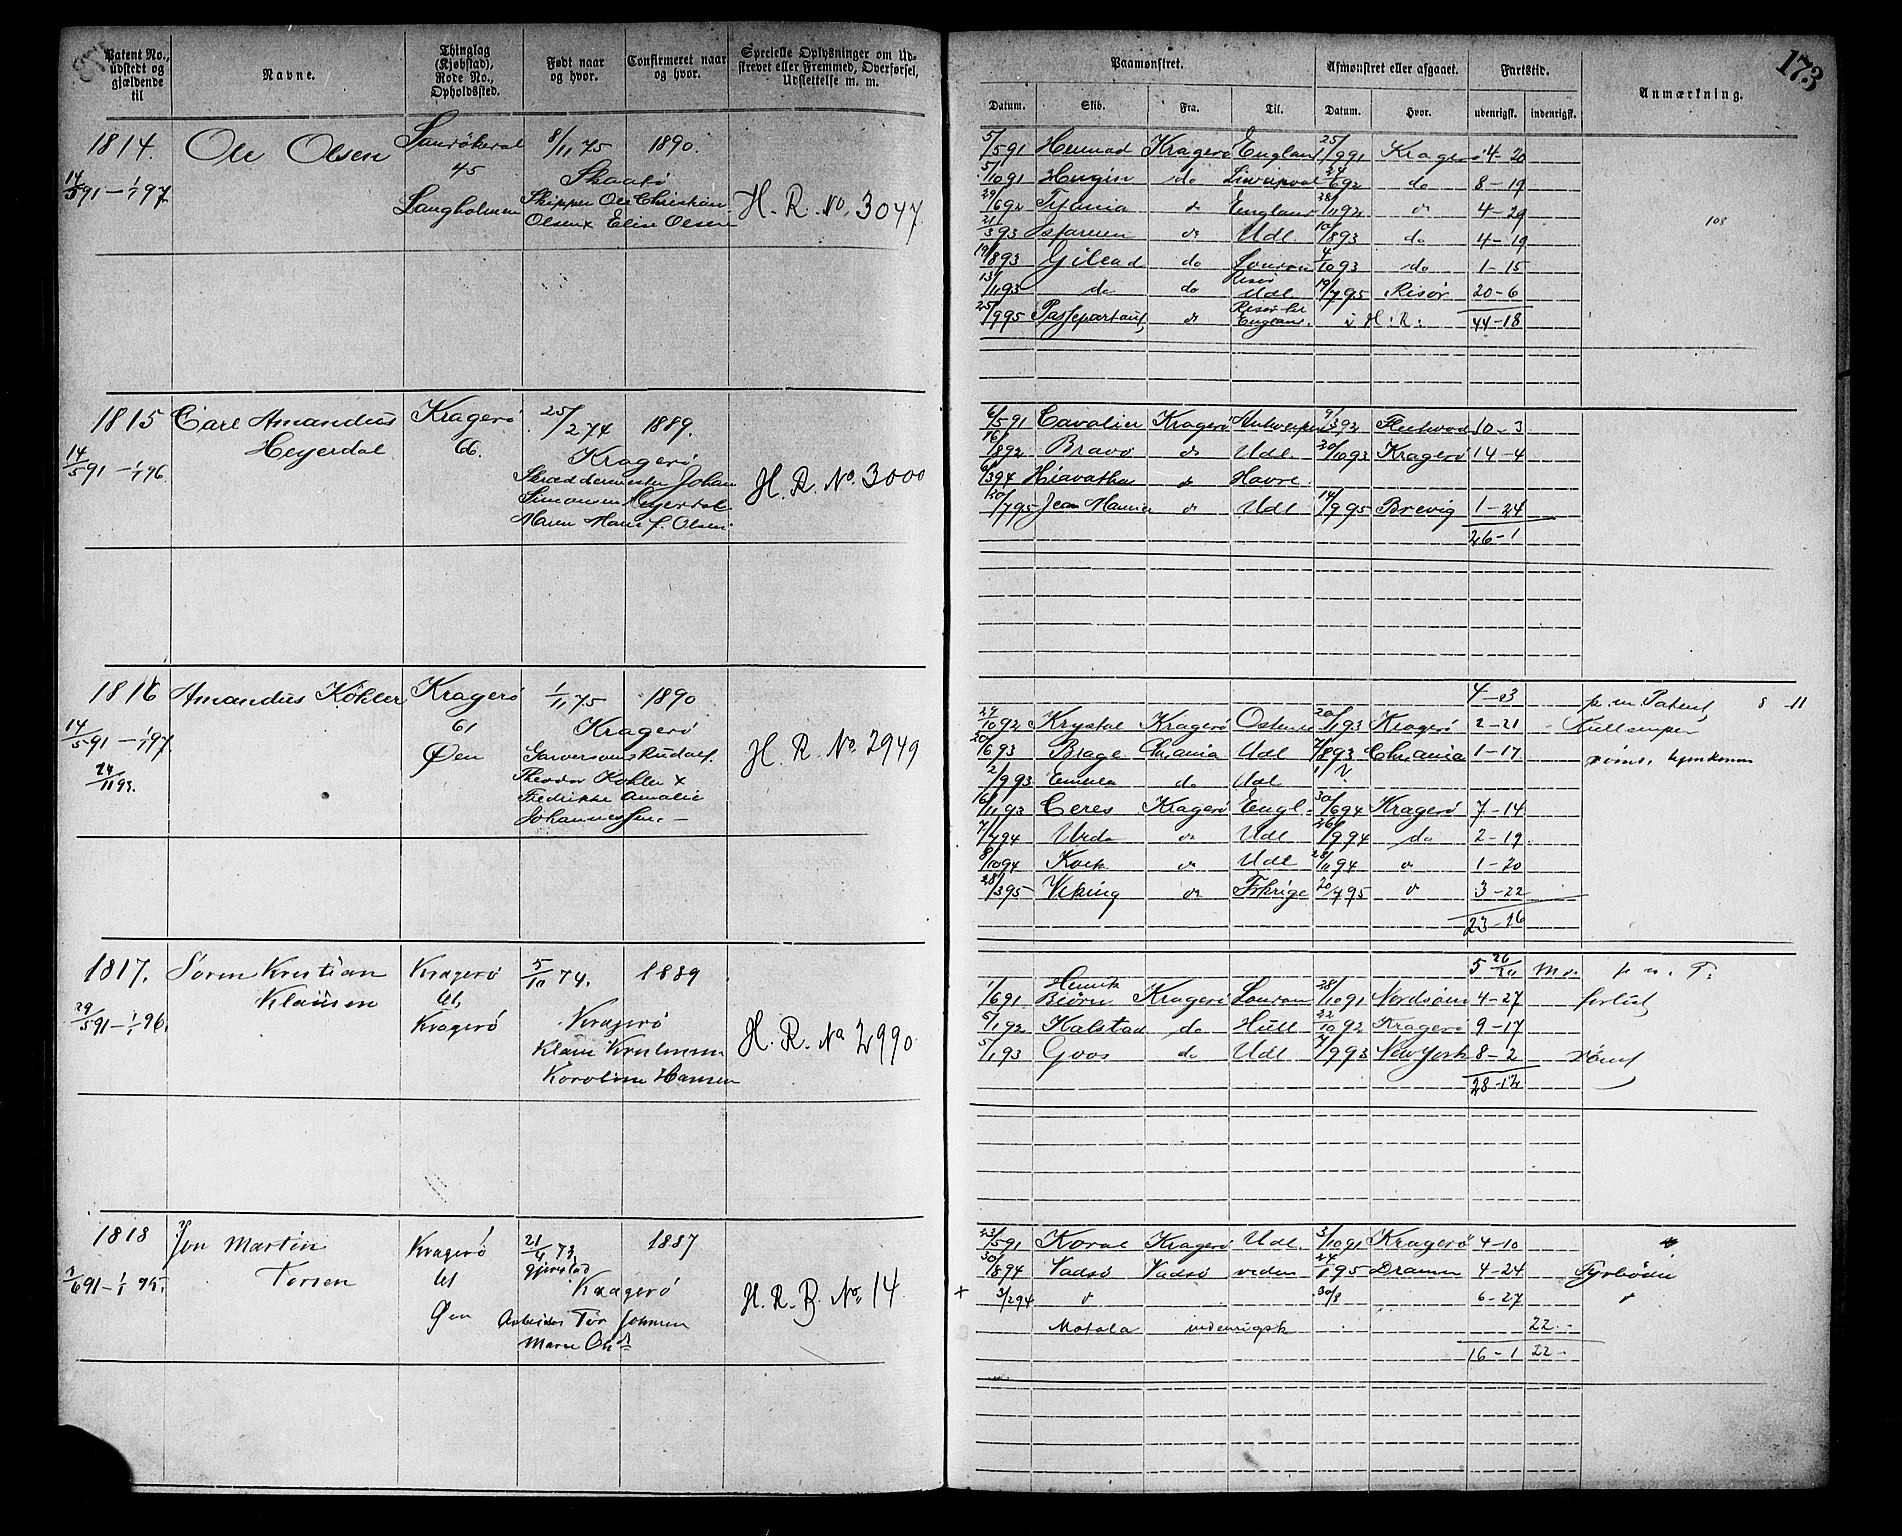 173
Patent No., udstedt og gjældende til
Navne.
Thinglag (Kjøbstad), Rode No., Opholdssted.
Født naar og hvor.
Confirmeret naar og hvor.
Specielle Oplysninger om Udstrevet eller Fremmed, Overførsel, Udslettelse m. m.
Paamønstret.
Afmønstret eller afgaaet.
Fartstid.
Anmærkning.
Datum. Skib. Fra. Til. Datum. Hvor. udenrigsk. indenrigsk.
1814. Ole Olsen
45
8/11 75 1890.
14/5 91 – 1/1 97
Langholmen
Skaatø
Skipper Ole Christian
Olsen x Elise Olsen
H. R. No. 3047.
5/5 91 Kragerø England 25/9 91 Kragerø 4–20
5/10 91 Hugin do Liverpool 24/6 92 do 8–19
29/6 92 Titania do England 28/11 92 do 4–29
21/3 93 do Udl. 10/8 93 do 4–19
19/8 93 Gilead do London 4/10 93 do 1–15
13/11 93 do do Risør Udl. 19/7 95 Risør 20–6
25/9 95 Passepartout do Risør til England. i H. R. 44–18
108
1815 Carl Amandus
Heyerdal
Kragerø
66.
25/2 74 1889.
14/5 91 – 1/1 96.
Kragerø
Skræddermester Johan
Simonsen Heyerdal
Maren Marie f. Olsen
H. R. No. 3000
6/5 91 Cavalier Kragerø Antwerpen 9/3 92 Fleetwood 10–3
16/8 92 Bravo do Udl. 20/10 93 Kragerø 14–4
6/3 94 Hiavatha do Havre.
20/7 95 Jean do Udl 14/9 95 Brevig 1–24
26–1
1816 Amandus Köhler
Kragerø
61
Øen
1/11 75 1890
14/5 91 – 1/1 97
24/11 93.
Kragerø
Garversvend Rudolf
Theodor Kohler x
Fredrikke Amalie
Johannessen. –
H. R. No. 2949
4–23 p. m Patent 8 11
29/10 92 Krystal Kragerø Ostende 20/1 93 Kragerø 2–21
20/6 93 Brage Chr.ania Udl 7/8 93 Chr.ania 1–17 rømt, hjemkommen
2/9 93 do Udl
16/11 93 Ceres Kragerø Engl. 30/6 94 Kragerø 7–14
7/7 94 Urda do Udl 26/9 94 do 2–19
8/10 94 do Udl 28/11 94 do 1–20
28/3 95 Viking do 20/7 95 do 3–22
23–16
1817. Søren Kristian
Klausen
Kragerø
61
Kragerø
5/10 74. 1889
29/5 91 – 1/1 96.
Kragerø
Karoline Hansen
H. R. No 2990
5 p. m. P:
1/6 91 Henrik Bjørn Kragerø London 28/10 91 Nordsøen 4–27 forlist
5/1 92 Kalstad do Hull 22/10 92 Kragerø 9–17
5/1 93 Goos do Udl 7/9 93 New York 8–2 rømt
28–12
1818 Jon Martin
Torsen
Kragerø
61
Øen
21/4 73, 1887
Gjerestad
Kragerø
Arbeider Tor Johnsen
Maren
H. R. B. No. 14
23/5 91 Koral Kragerø Udl. 3/10 91 Kragerø 4–10
30/8 94 Vadsø Vadsø 24/1 95 Drammen 4–24 Fyrbøder
x 3/2 94 do 30/8 6–27 do
Motala indenrigsk 22 –
16–1 22 –